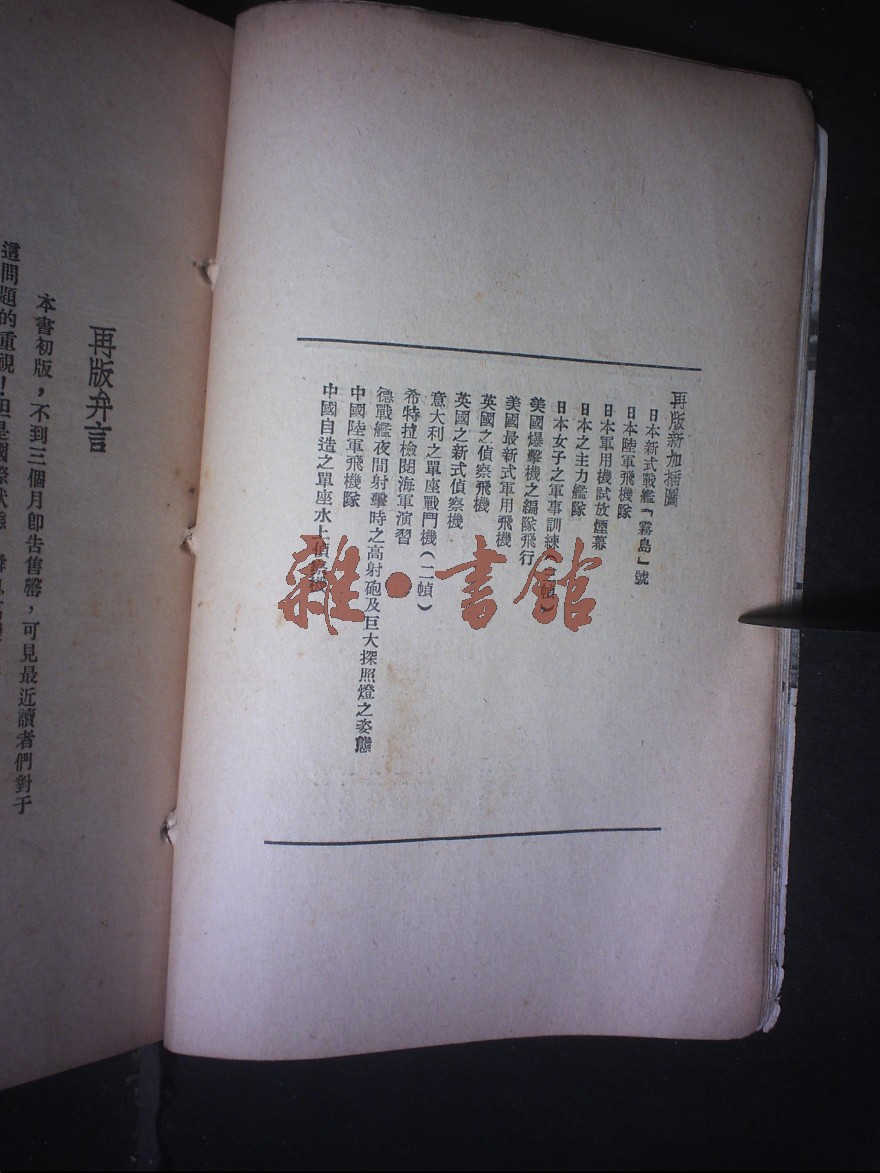 再版新加插圖
日本新式戰艦「霧島」號
日本陸軍飛機隊
日本軍用機試放煙幕
日本之主力艦隊
日本女子之軍事訓練(二幀)
美國爆擊機之編隊飛行
美國最新式軍用飛機
英國之偵察飛機
英國之新式偵察機
意大利之單座戰鬥機(二幀)
希特拉檢閱海軍演習
德戰艦夜間射擊時之高射砲及巨大探照燈之姿態
中國陸軍飛機隊
中國自造之單座水上偵察機
雜·書館
再版弁言
本書初版,不到三個月卽吿售罄,可見最近讀者們對于
這問題的重視!但是國際狀態